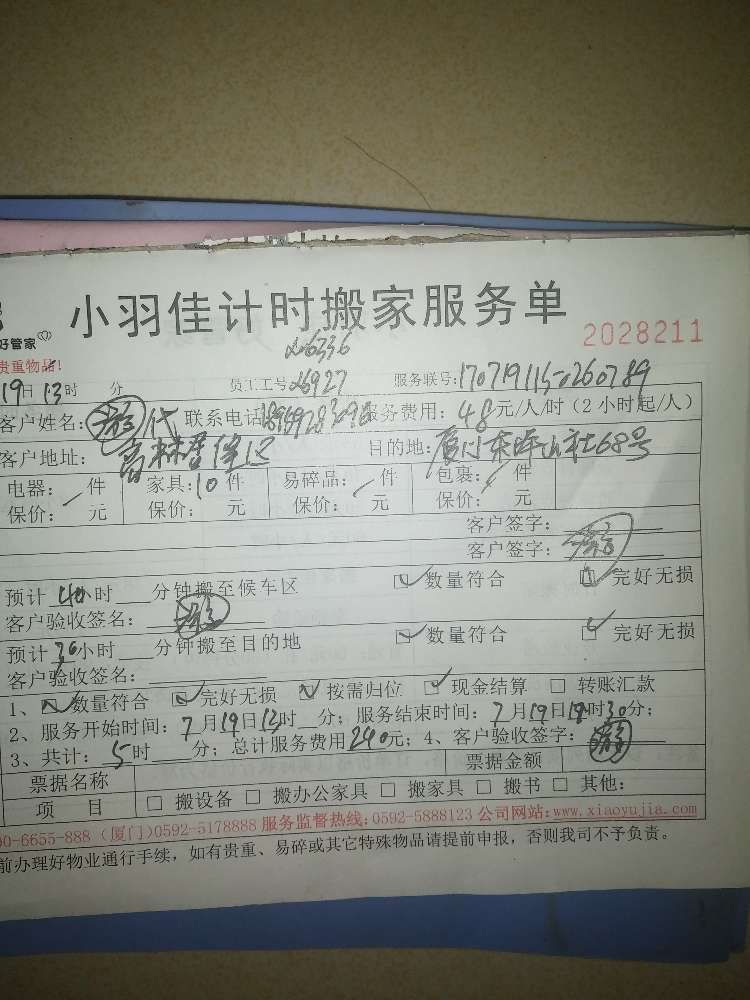 小羽佳计时搬家服务单
2028211
好管家
贵重物品!
19日 13时 分 员工工号: 服务联号:
客户姓名: 联系电话 服务费用: 48元/人/时(2小时起/人)
客户地址: 目的地: 68号
电器: 件 家具: 10件 易碎品: 件 包裹: 件
保价: 元 保价: 元 保价: 元 保价: 元
客户签字:
客户签字:
预计 小时 分钟搬至候车区 数量符合 完好无损
客户验收签名:
预计 小时 分钟搬至目的地 数量符合 完好无损
客户验收签名:
1、 数量符合 完好无损 按需归位 现金结算 转账汇款
2、服务开始时间: 7月19日13时 分; 服务结束时间: 7月19日 时30分;
3、共计: 5时 分; 总计服务费用240元; 4、客户验收签字:
票据名称 票据金额
项目 搬设备 搬办公家具 搬家具 搬书 其他:
00-6655-888 (厦门)0592-5178888 服务监督热线:0592-5888123 公司网站:www.xiaoyujia.com
前办理好物业通行手续, 如有贵重、易碎或其它特殊物品请提前申报, 否则我司不予负责。